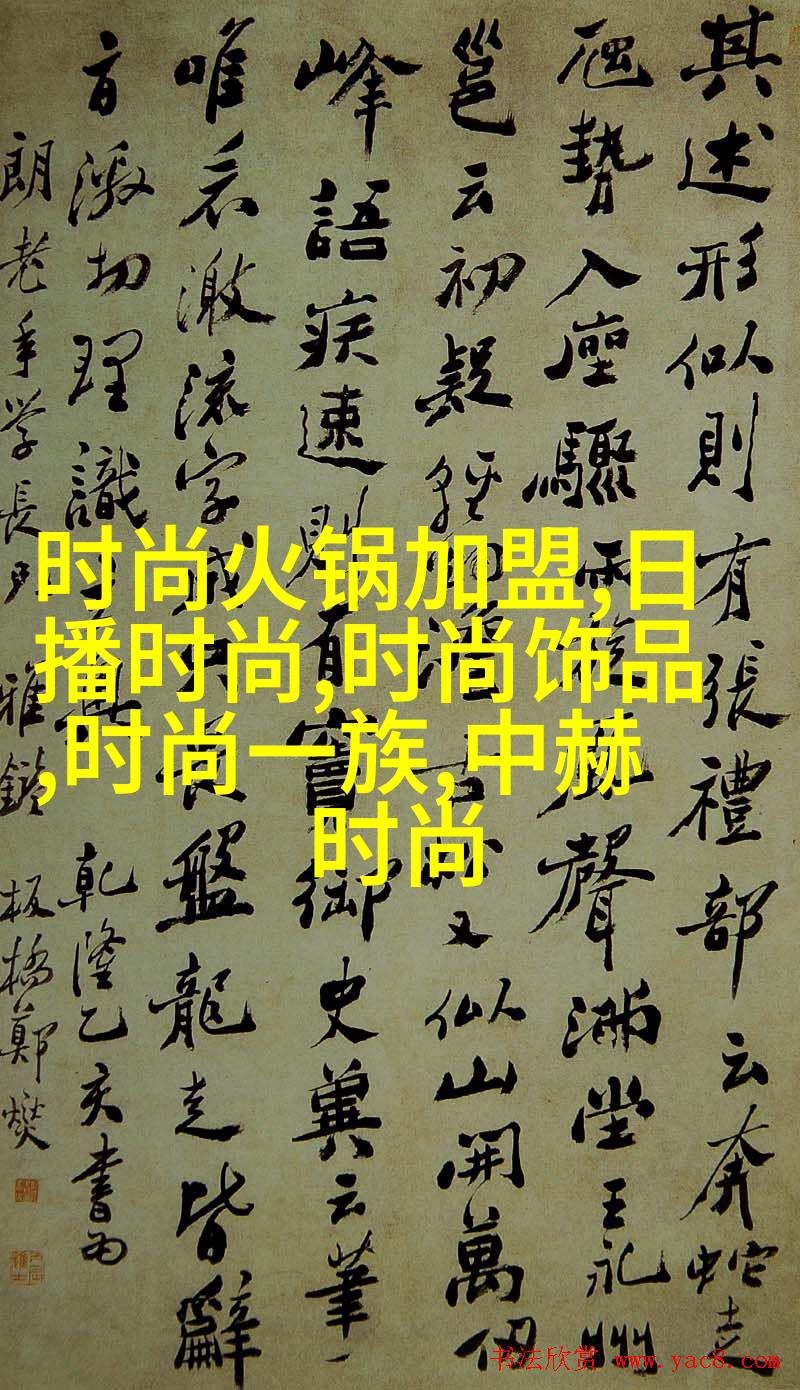 其述形似則有張禮部云奔蛇走
虺勢入座驟雨旋風聲滿堂王永州
邕云初疑輕煙澹古松又似山開萬仞
峰語疾速則有竇御史冀云筆一
唯看激流字成只畏盤龍走皆辭
旨激切理識玄奧 乾隆乙亥書為
朗老年學長兄 雅鑒 板橋鄭燮
时尚火锅加盟,日
播时尚,时尚饰品
,时尚一族,中赫
时尚
书法欣赏 www.yac8.com